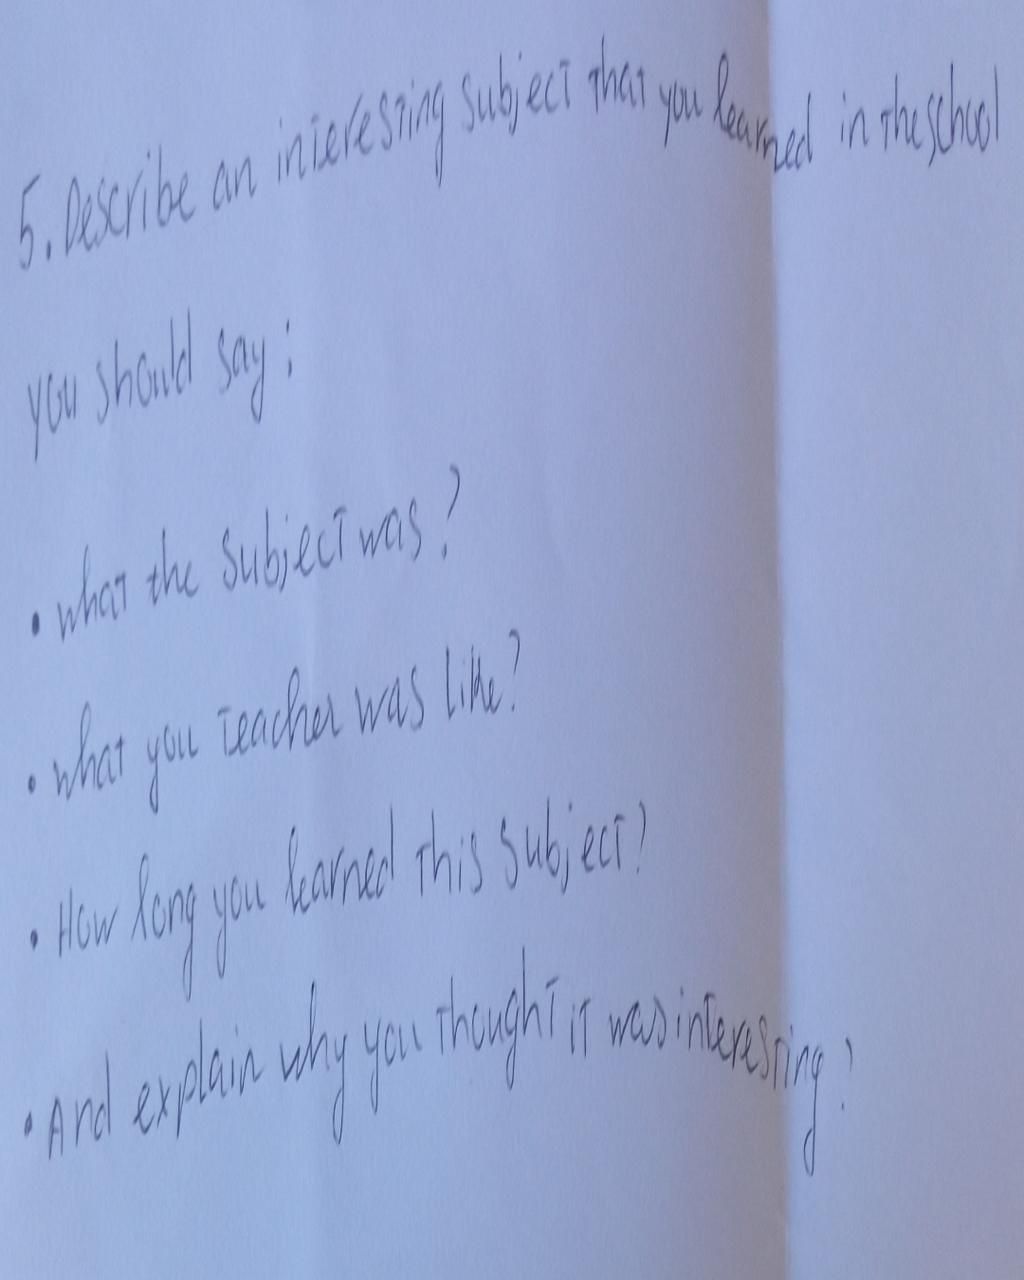 5. Describe an interesting subject that you learned in the school
you should say :
• what the subject was ?
• what you teacher was like ?
• How long you learned this subject ?
• And explain why you thought it was interesting ?